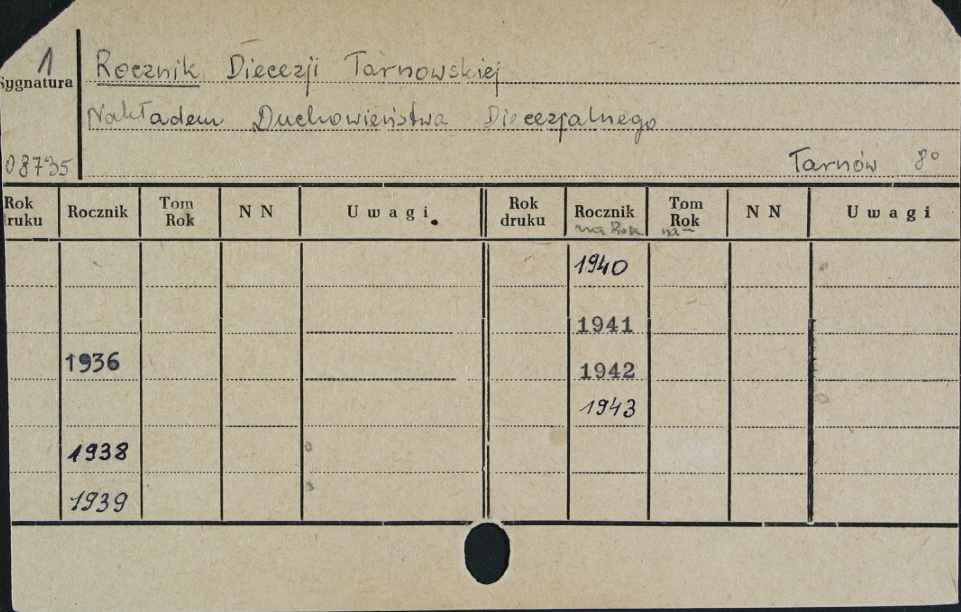 1
Sygnatura
Rocznik Diecezji Tarnowskiej
Nakładem Duchowieństwa Diecezjalnego
08735
Tarnów 8°
Rok druku Rocznik Tom Rok N N Uwagi Rok druku Rocznik Tom Rok N N Uwagi
na Rok na
1940
1941
1936
1942
1943
1938
1939